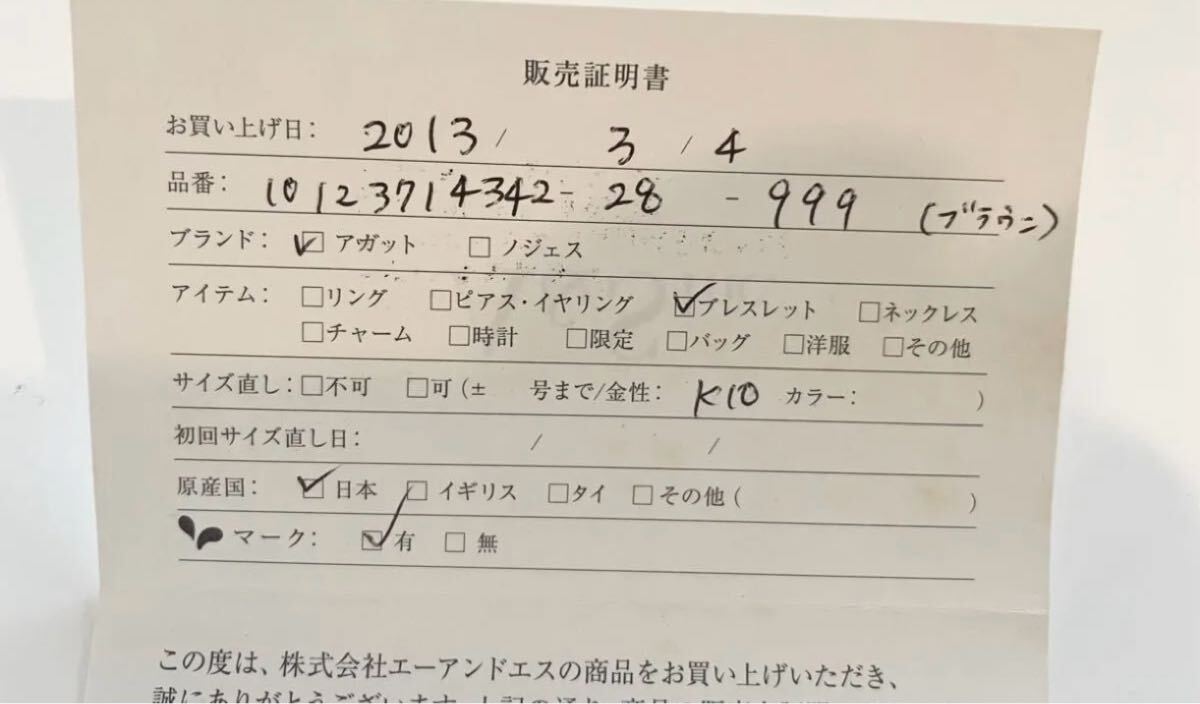 販売証明書
お買い上げ日： 2013 / 3 / 4
品番： 10123714342- 28 - 999 (ブラウン)
ブランド： ☑ アガット □ ノジェス
アイテム： □リング □ピアス・イヤリング ☑ブレスレット □ネックレス
□チャーム □時計 □限定 □バッグ □洋服 □その他
サイズ直し：□不可 □可 (± 号まで/金性： K10 カラー： )
初回サイズ直し日： / /
原産国： ☑ 日本 □ イギリス □タイ □その他 ( )
マーク： ☑ 有 □ 無
この度は、株式会社エーアンドエスの商品をお買い上げいただき、
誠にありがとうございます。上記の通り、商品の販売を